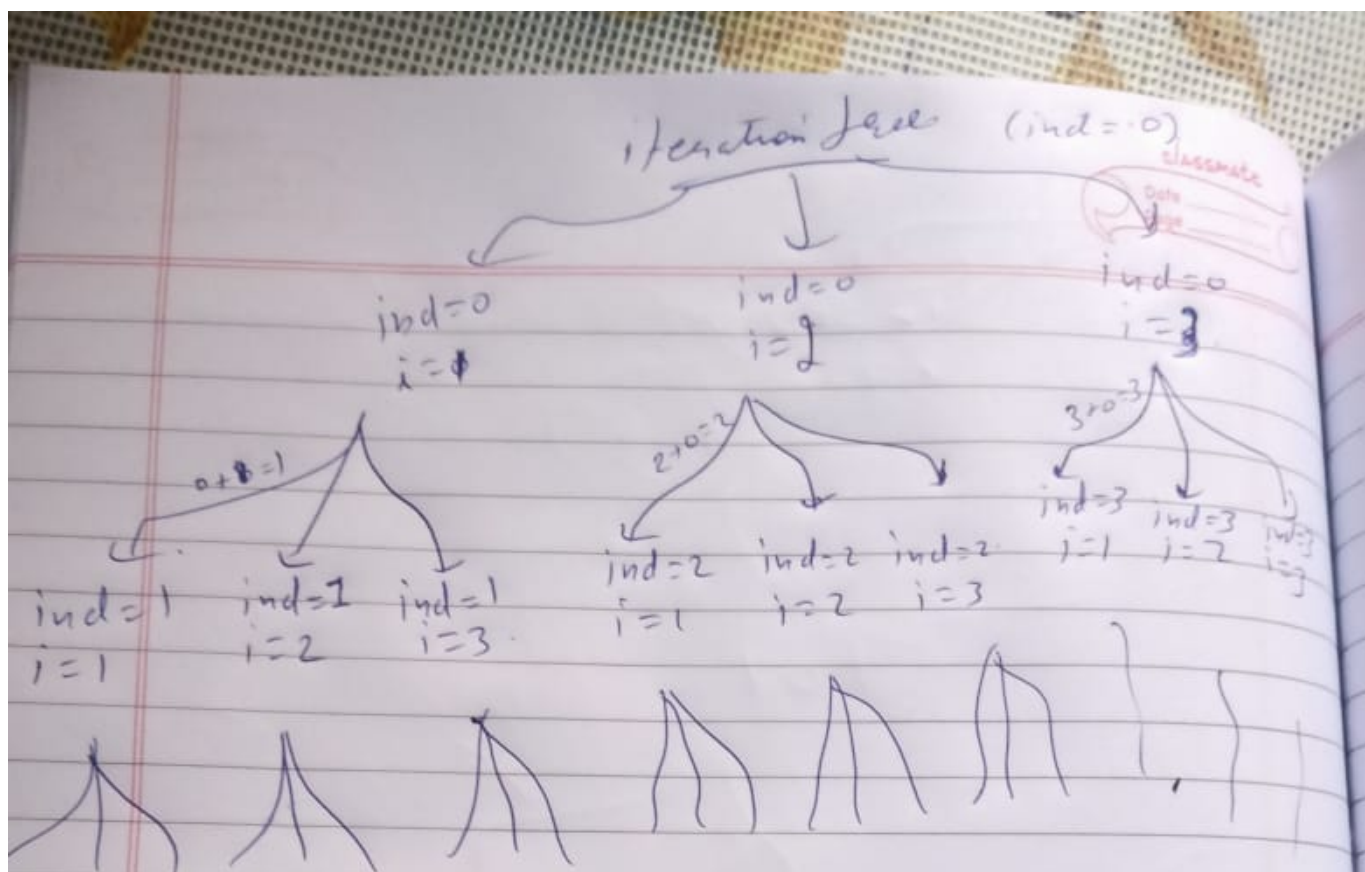 iteration tree (ind = 0)
classmate
Date
Page
ind=0
i=1
ind=0
i=2
ind=0
i=3
0+1=1
2+0=2
3+0=3
ind=1
i=1
ind=1
i=2
ind=1
i=3
ind=2
i=1
ind=2
i=2
ind=2
i=3
ind=3
i=1
ind=3
i=2
ind=3
i=3